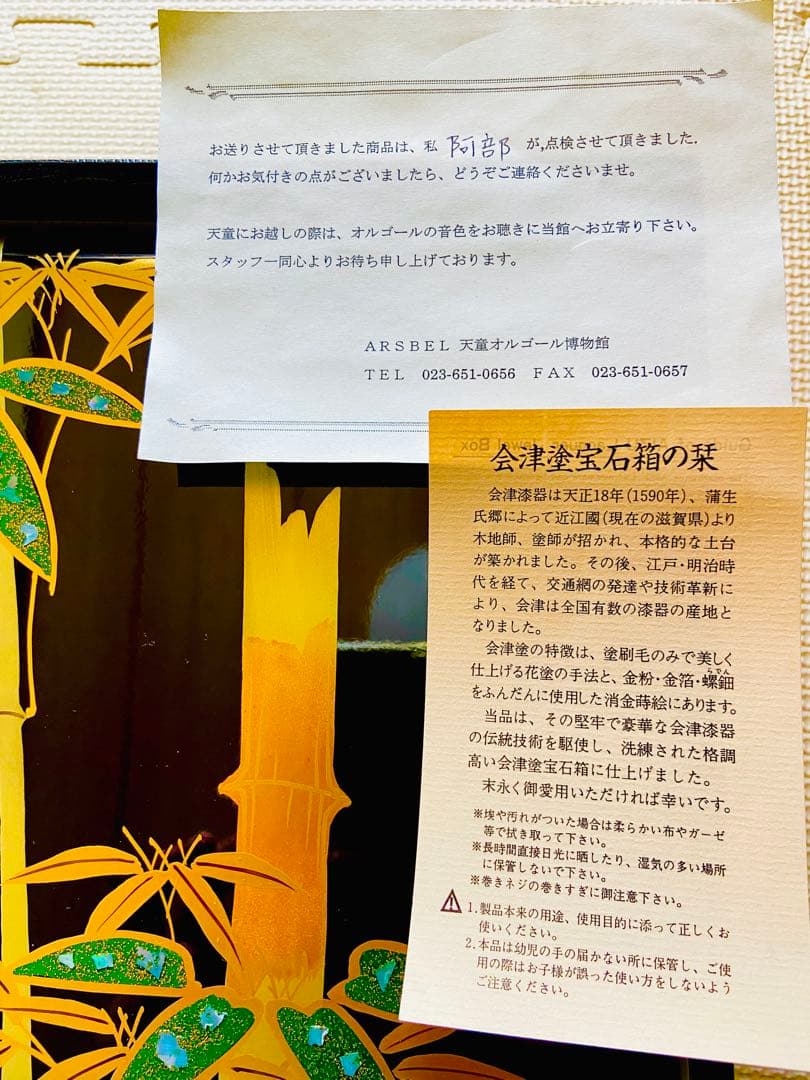 お送りさせて頂きました商品は、私 阿部 が,点検させて頂きました.
何かお気付きの点がございましたら、どうぞご連絡くださいませ。
天童にお越しの際は、オルゴールの音色をお聴きに当館へお立寄り下さい。
スタッフ一同心よりお待ち申し上げております。
ARSBEL 天童オルゴール博物館
TEL 023-651-0656 FAX 023-651-0657
会津塗宝石箱の栞
会津漆器は天正18年(1590年)、蒲生
氏郷によって近江國(現在の滋賀県)より
木地師、塗師が招かれ、本格的な土台
が築かれました。その後、江戸・明治時
代を経て、交通網の発達や技術革新に
より、会津は全国有数の漆器の産地と
なりました。
会津塗の特徴は、塗刷毛のみで美しく
仕上げる花塗の手法と、金粉・金箔・螺鈿
らでん
をふんだんに使用した消金蒔絵にあります。
当品は、その堅牢で豪華な会津漆器
の伝統技術を駆使し、洗練された格調
高い会津塗宝石箱に仕上げました。
末永く御愛用いただければ幸いです。
※埃や汚れがついた場合は柔らかい布やガーゼ
等で拭き取って下さい。
※長時間直接日光に晒したり、湿気の多い場所
に保管しないで下さい。
※巻きネジの巻きすぎに御注意下さい。
1.製品本来の用途、使用目的に添って正しくお
使いください。
2.本品は幼児の手の届かない所に保管し、ご使
用の際はお子様が誤った使い方をしないよう
ご注意ください。